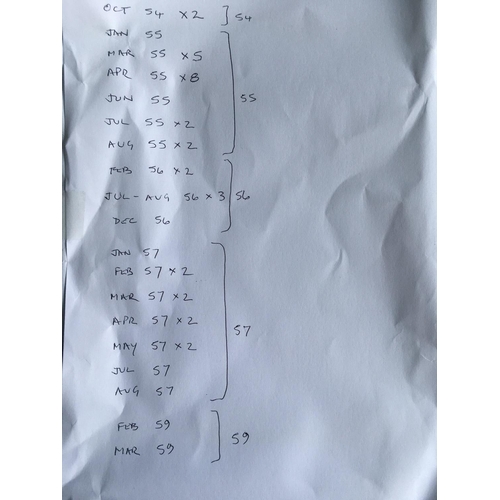 OCT 54 x 2 ] 54
JAN 55
MAR 55 x 5
APR 55 x 8
JUN 55 55
JUL 55 x 2
AUG 55 x 2
FEB 56 x 2
JUL - AUG 56 x 3 56
DEC 56
JAN 57
FEB 57 x 2
MAR 57 x 2
APR 57 x 2 57
MAY 57 x 2
JUL 57
AUG 57
FEB 59 ] 59
MAR 59